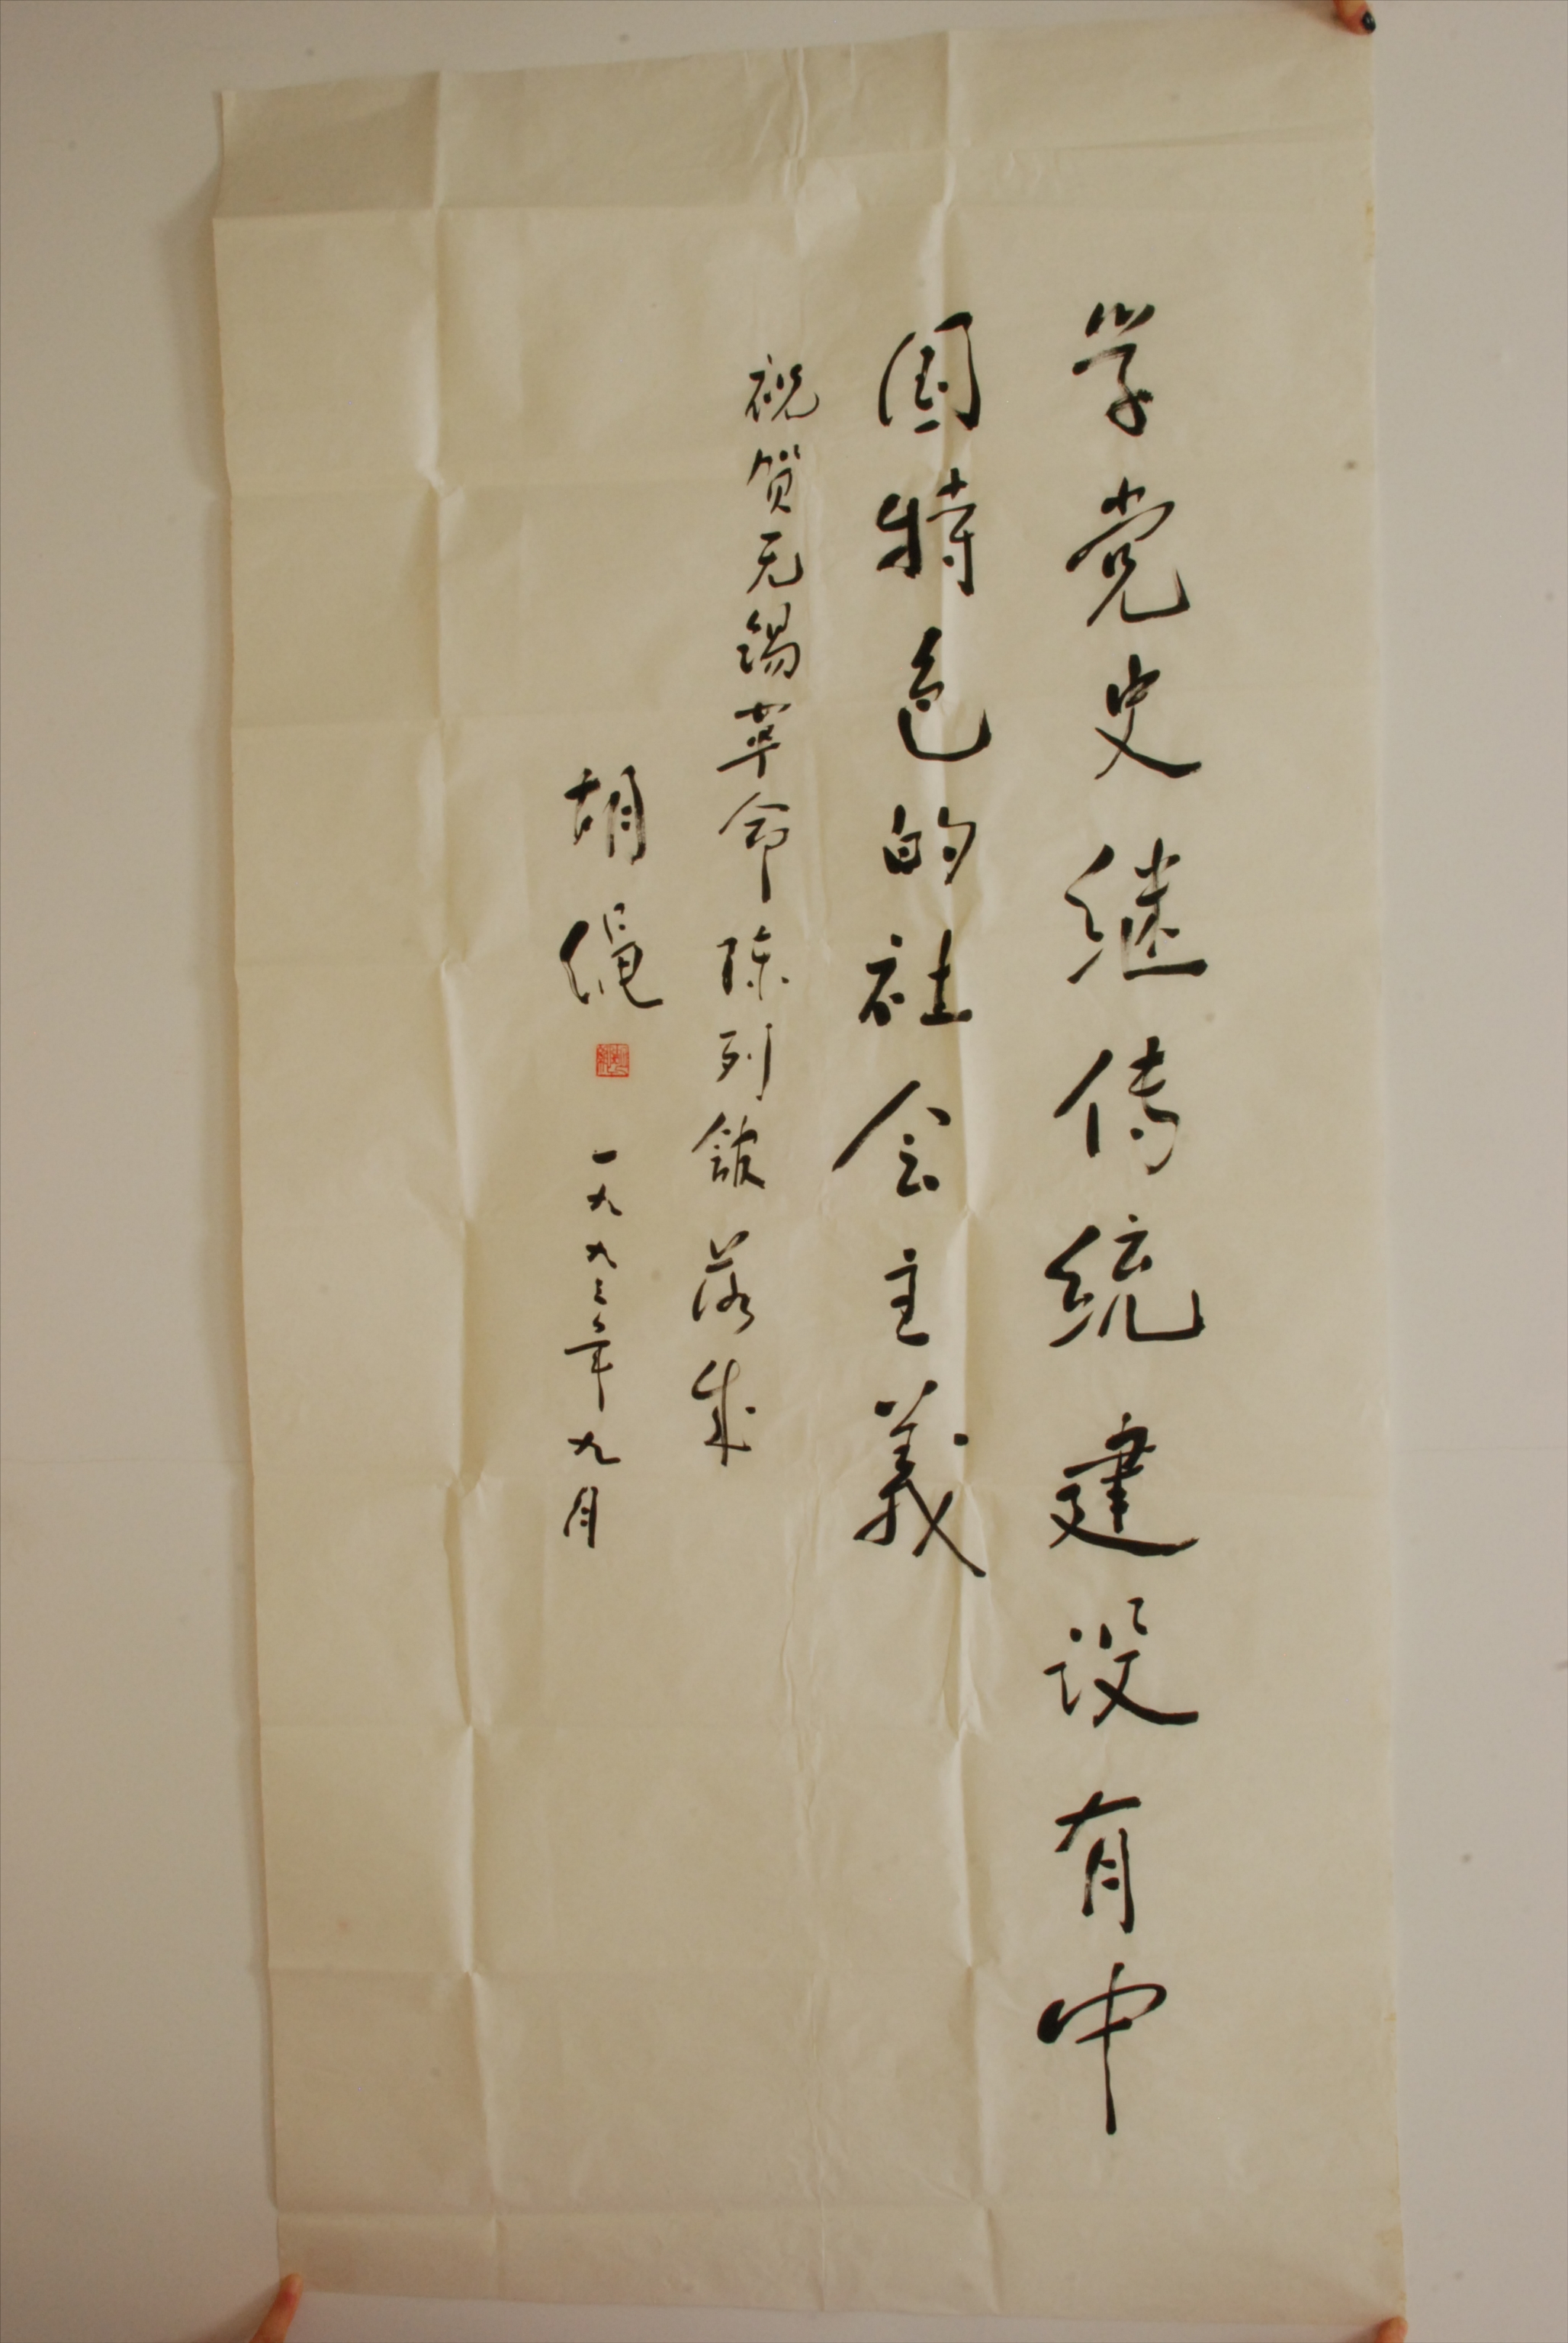 学党史继传统建设有中
国特色的社会主义
祝贺无锡革命陈列馆落成
胡绳
一九九三年九月